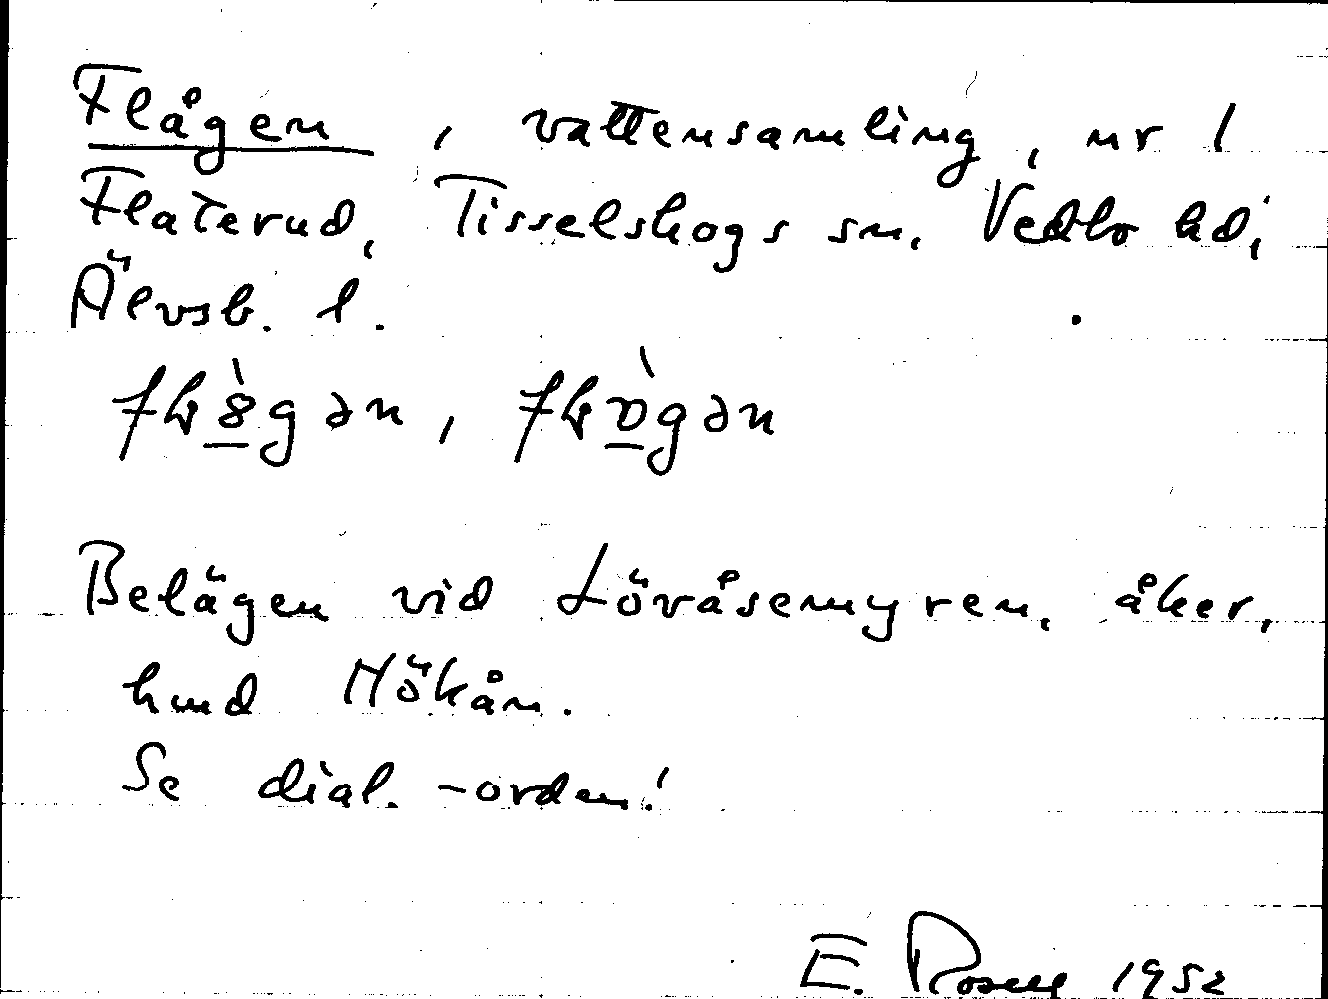 Flågen, vattensamling, nr 1
Flaterud, Tisselskogs sn, Vedbo hd,
Älvsb. l.
Belägen vid Lövåsemyren, åker,
hmd Hökån.
Se dial.-orden!
E. Rosell 1952